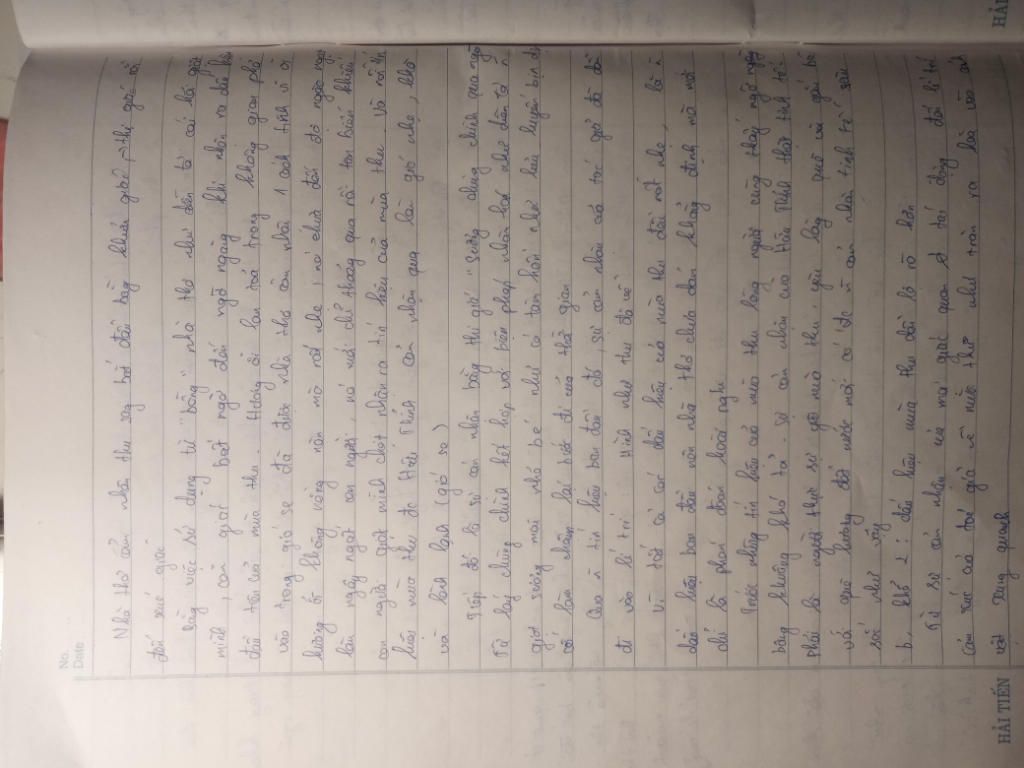 No.
Date
Nhà thơ cảm nhận thu sang bắt đầu bằng khứu giác → thị giác rồi
đến xúc giác
Bằng việc sử dụng từ "bỗng" nhà thơ như diễn tả cái bất giác
mình, cảm giác bất ngờ đến ngỡ ngàng khi nhận ra dấu hiệu
đầu tiên của mùa thu. Hương ổi lan toả trong không gian phả
vào trong gió se đã được nhà thơ cảm nhận 1 cách tinh vi vì
hương ổi không nồng nàn mà rất nhẹ, nó chưa đến độ ngào ngạt
làm ngây ngất con người, nó mới chỉ thoáng qua rồi tan biến khiến
con người giật mình chợt nhận ra tín hiệu của mùa thu. Và nỗi
hứng mùa thu đc Hữu Thỉnh cảm nhận qua làn gió nhẹ, khô
và lành lạnh (gió se)
Tiếp đó là sự cảm nhận bằng thị giác "Sương chùng chình qua ngõ
Từ láy chùng chình kết hợp với biện pháp nhân hoá như diễn tả n
giọt sương mai nhỏ bé như có tâm hồn như lưu luyến bịn
cố làm chậm lại bước đi của thời gian
Qua n tín hiệu ban đầu đó, sự cảm nhận của tác giả đã dần
đi vào lí trí: Hình như thu đã về
Vì tất cả các dấu hiệu của mùa thu đều rất nhẹ, là n
dấu hiệu ban đầu nên nhà thơ chưa dám khẳng định mà mới
chỉ là phán đoán hoài nghi
Trước những tín hiệu của mùa thu lòng người cũng thấy ngỡ ngàng
bâng khuâng khó tả. Sự cảm nhận của Hữu Thỉnh thật tinh tế
Phải là người thực sự yêu mùa thu yêu làng quê và gắn bó
với quê hương đất nước mới có đc n cảm nhận tinh tế sâu
sắc như vậy
b, khổ 2: dấu hiệu mùa thu dần lộ rõ hơn
Từ sự cảm nhận của mọi giác quan tác động đến lí trí
cảm xúc của tác giả về mùa thu như tràn ra hoà vào cảnh
vật xung quanh
HẢI TIẾN
HẢI